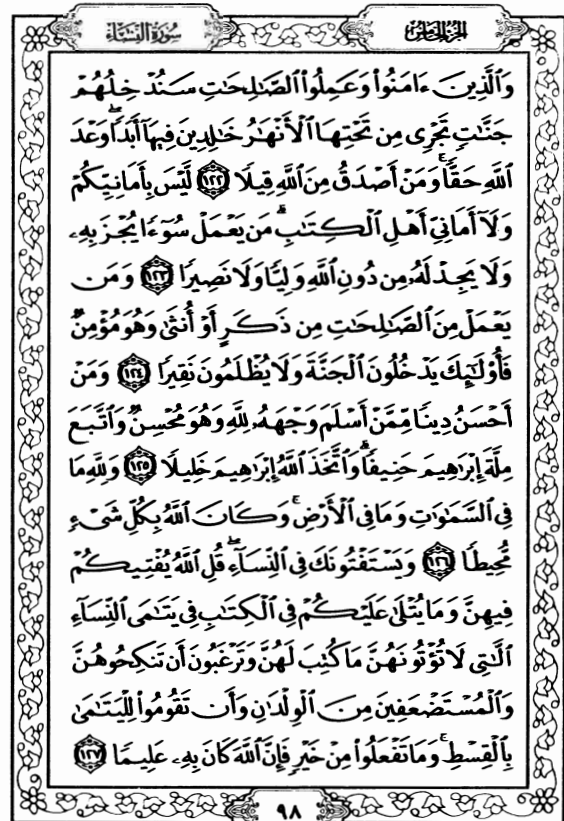 سُورَةُ النِّسَاءِ
الجزء الخامس
وَٱلَّذِينَ ءَامَنُوا۟ وَعَمِلُوا۟ ٱلصَّـٰلِحَـٰتِ سَنُدْخِلُهُمْ
جَنَّـٰتٍ تَجْرِى مِن تَحْتِهَا ٱلْأَنْهَـٰرُ خَـٰلِدِينَ فِيهَآ أَبَدًا ۖ وَعْدَ
ٱللَّهِ حَقًّا ۚ وَمَنْ أَصْدَقُ مِنَ ٱللَّهِ قِيلًا ١٢٢ لَّيْسَ بِأَمَانِيِّكُمْ
وَلَآ أَمَانِىِّ أَهْلِ ٱلْكِتَـٰبِ ۗ مَن يَعْمَلْ سُوٓءًا يُجْزَ بِهِۦ
وَلَا يَجِدْ لَهُۥ مِن دُونِ ٱللَّهِ وَلِيًّا وَلَا نَصِيرًا ١٢٣ وَمَن
يَعْمَلْ مِنَ ٱلصَّـٰلِحَـٰتِ مِن ذَكَرٍ أَوْ أُنثَىٰ وَهُوَ مُؤْمِنٌ
فَأُو۟لَـٰٓئِكَ يَدْخُلُونَ ٱلْجَنَّةَ وَلَا يُظْلَمُونَ نَقِيرًا ١٢٤ وَمَنْ
أَحْسَنُ دِينًا مِّمَّنْ أَسْلَمَ وَجْهَهُۥ لِلَّهِ وَهُوَ مُحْسِنٌ وَٱتَّبَعَ
مِلَّةَ إِبْرَٰهِيمَ حَنِيفًا ۗ وَٱتَّخَذَ ٱللَّهُ إِبْرَٰهِيمَ خَلِيلًا ١٢٥ وَلِلَّهِ مَا
فِى ٱلسَّمَـٰوَٰتِ وَمَا فِى ٱلْأَرْضِ ۚ وَكَانَ ٱللَّهُ بِكُلِّ شَىْءٍ
مُّحِيطًا ١٢٦ وَيَسْتَفْتُونَكَ فِى ٱلنِّسَآءِ ۖ قُلِ ٱللَّهُ يُفْتِيكُمْ
فِيهِنَّ وَمَا يُتْلَىٰ عَلَيْكُمْ فِى ٱلْكِتَـٰبِ فِى يَتَـٰمَى ٱلنِّسَآءِ
ٱلَّـٰتِى لَا تُؤْتُونَهُنَّ مَا كُتِبَ لَهُنَّ وَتَرْغَبُونَ أَن تَنكِحُوهُنَّ
وَٱلْمُسْتَضْعَفِينَ مِنَ ٱلْوِلْدَٰنِ وَأَن تَقُومُوا۟ لِلْيَتَـٰمَىٰ
بِٱلْقِسْطِ ۚ وَمَا تَفْعَلُوا۟ مِنْ خَيْرٍ فَإِنَّ ٱللَّهَ كَانَ بِهِۦ عَلِيمًا ١٢٧
٩٨